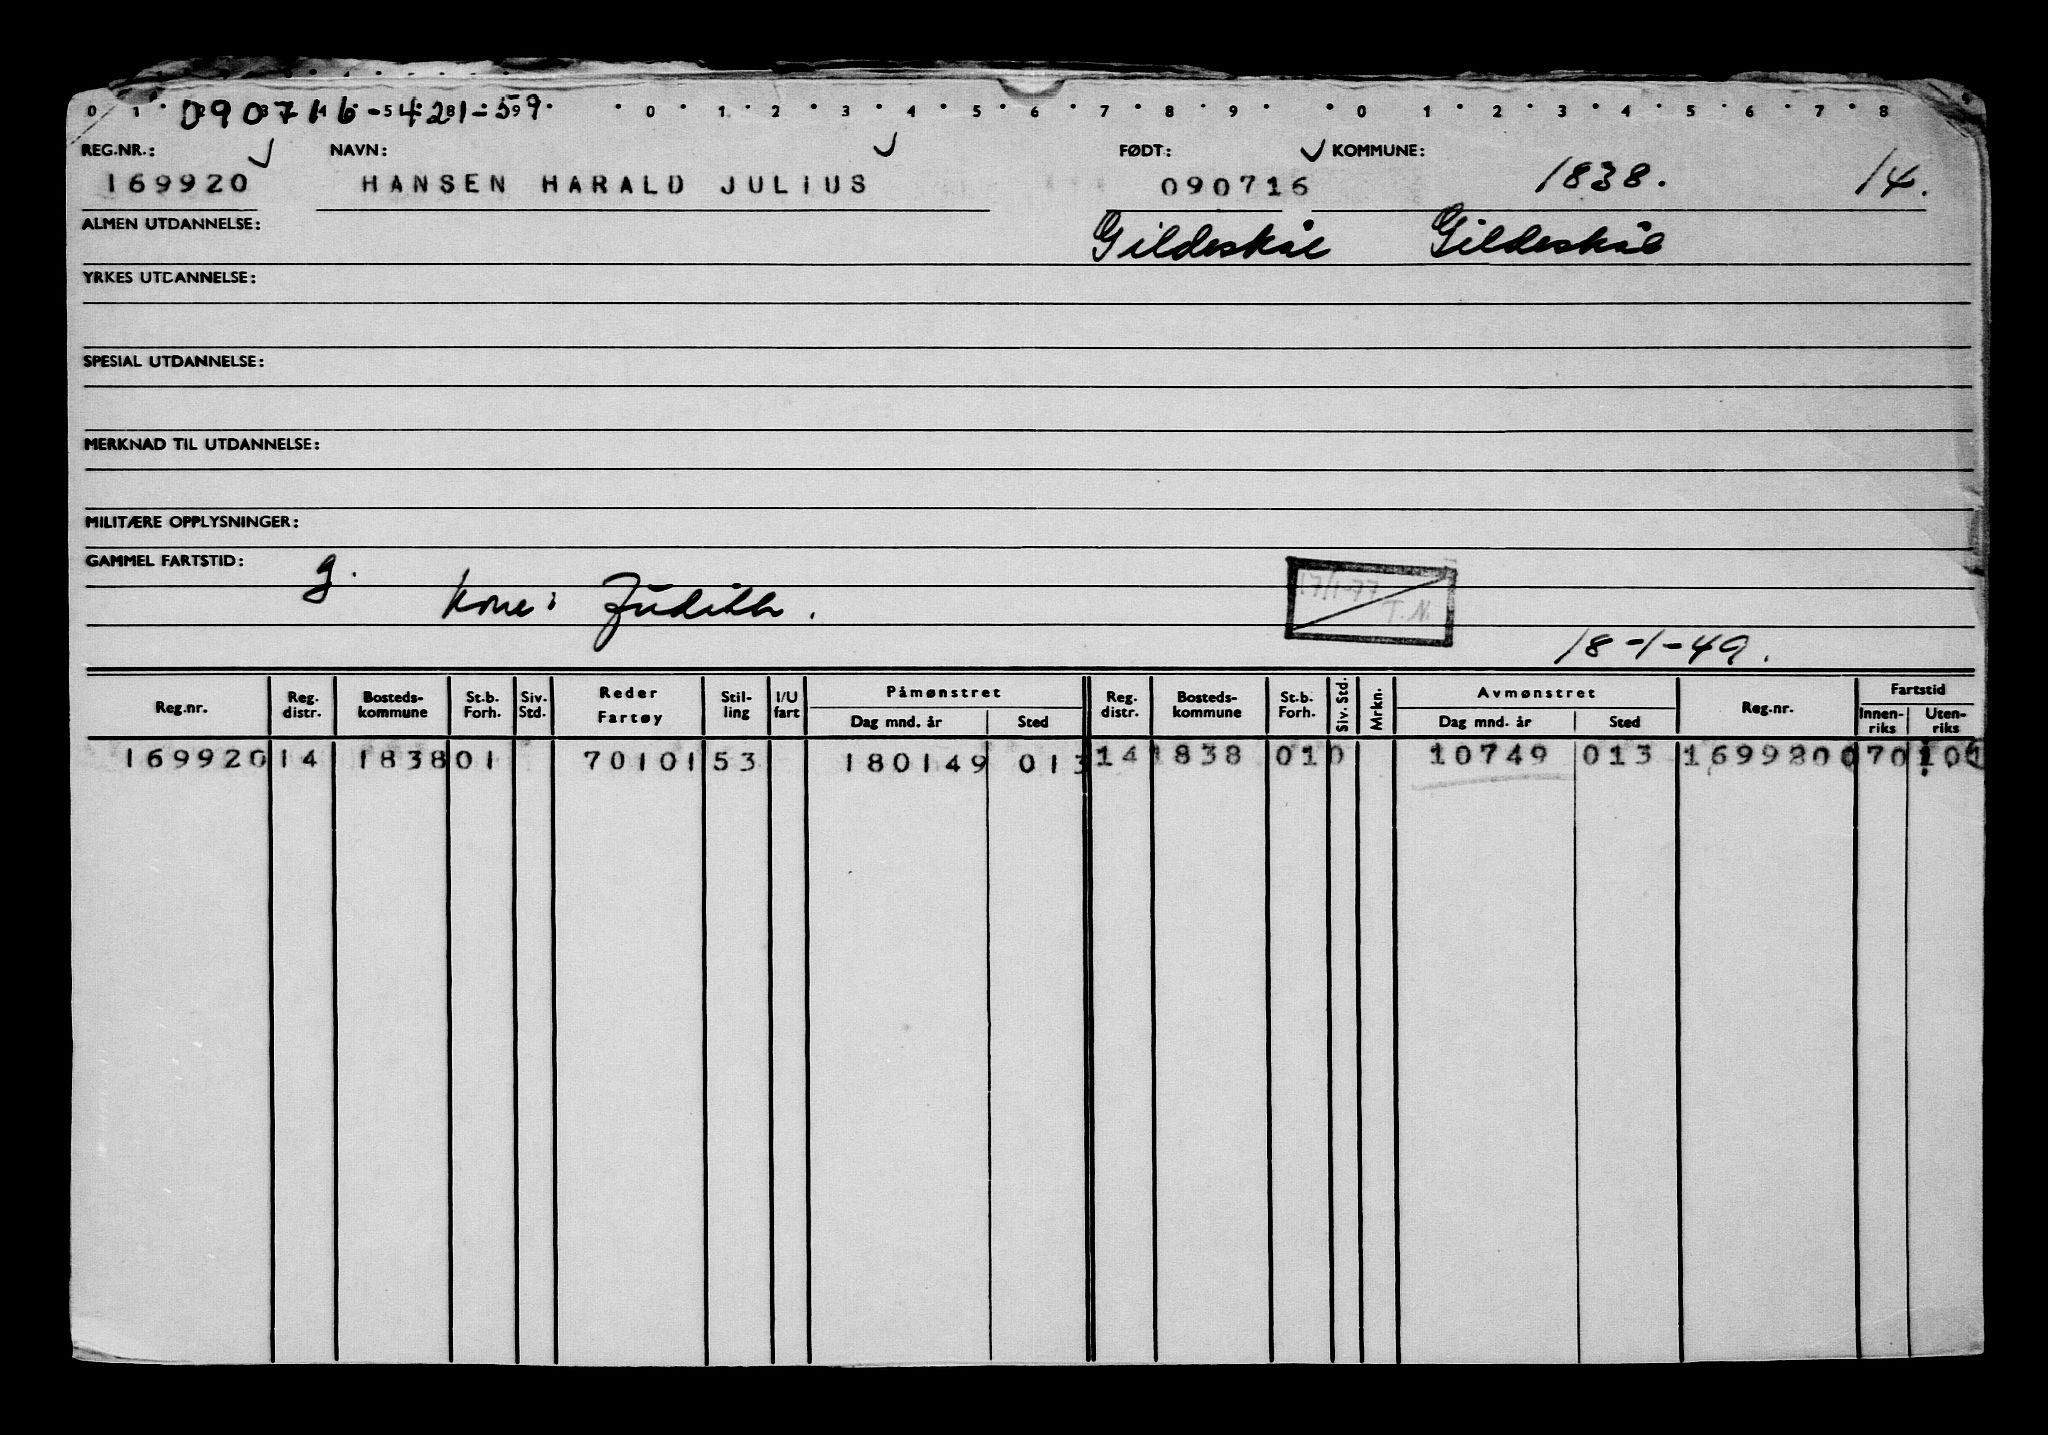 090716-54281-59
0 1 0 1 2 3 4 5 6 7 8 9 0 1 2 3 4 5 6 7 8
REG.NR.: NAVN: FØDT: KOMMUNE:
169920 HANSEN HARALD JULIUS 090716 1838. 14.
ALMEN UTDANNELSE: Gildeskål Gildeskål
YRKES UTDANNELSE:
SPESIAL UTDANNELSE:
MERKNAD TIL UTDANNELSE:
MILITÆRE OPPLYSNINGER:
GAMMEL FARTSTID: g.
Kone: Judith.
17/1-77
T.N.
18-1-49.
Reg.nr. Reg. distr. Bosteds- kommune St.b. Forh. Siv. Std. Reder Fartøy Stil- ling I/U fart Påmønstret Dag mnd. år Sted Reg. distr. Bosteds- kommune St.b. Forh. Siv. Std. Mrkn. Avmønstret Dag mnd. år Sted Reg.nr. Fartstid Innen- riks Uten- riks
169920 14 1838 01 70101 53 180149 013 14 1838 01 0 10749 013 1699200 70 101